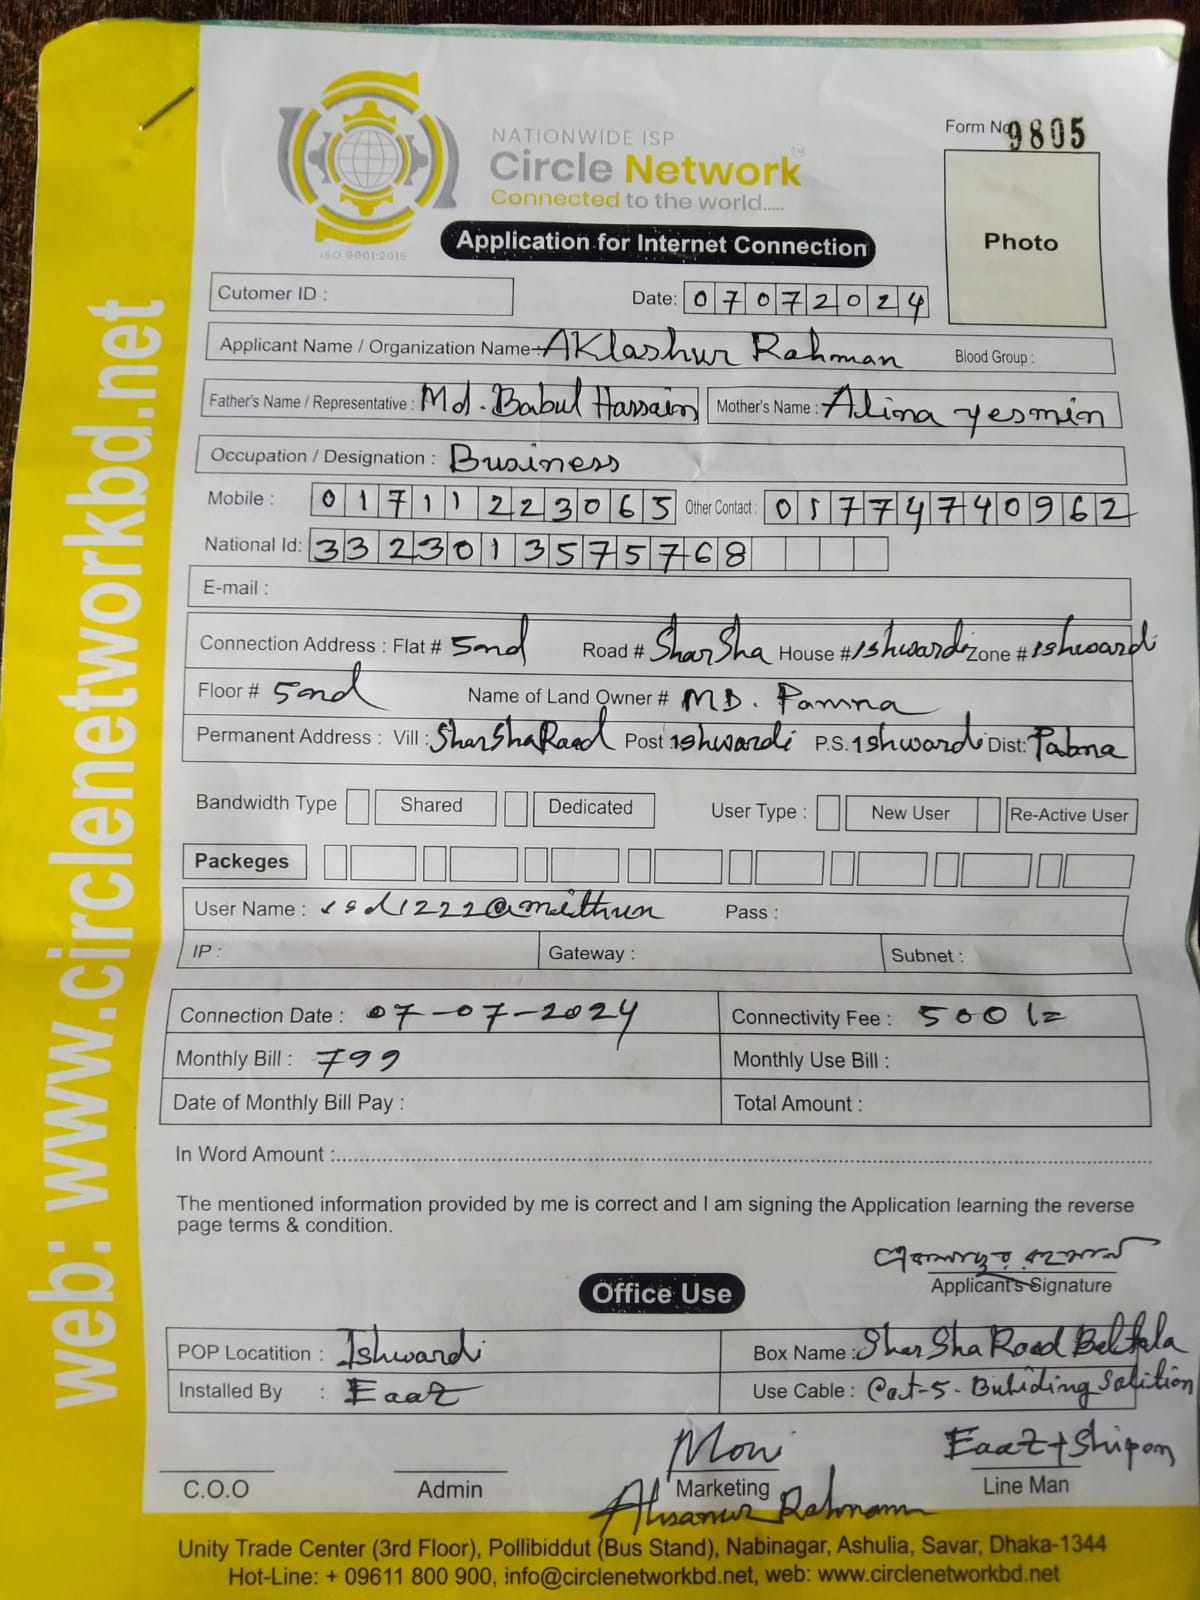 web: www.circlenetworkbd.net
NATIONWIDE ISP
Circle Network SM
Connected to the world.....
ISO 9001:2015
Form No 9805
Photo
Application for Internet Connection
Cutomer ID :
Date: 07072024
Applicant Name / Organization Name- AKlashur Rahman Blood Group :
Father's Name / Representative : Md. Babul Hassain Mother's Name : Alina yesmin
Occupation / Designation : Business
Mobile : 01711223065 Other Contact : 01774740962
National Id: 3323013575768
E-mail :
Connection Address : Flat # 5nd Road # SharSha House # Ishwardi Zone # Ishwardi
Floor # 5nd Name of Land Owner # MD. Panna
Permanent Address : Vill : SharShaRaod Post : Ishwardi P.S. Ishwardi Dist: Pabna
Bandwidth Type Shared Dedicated User Type : New User Re-Active User
Packeges
User Name : isd1222@mithun Pass :
IP : Gateway : Subnet :
Connection Date : 07-07-2024 Connectivity Fee : 500/=
Monthly Bill : 799 Monthly Use Bill :
Date of Monthly Bill Pay : Total Amount :
In Word Amount :
The mentioned information provided by me is correct and I am signing the Application learning the reverse
page terms & condition.
Applicant's Signature
Office Use
POP Locatition : Ishwardi Box Name : SharSha Raod Beltala
Installed By : Eaaz Use Cable : Cat-5. Buliding Salition
Moni Eaaz+Shipon
C.O.O Admin Marketing Line Man
Ahsanur Rahmann
Unity Trade Center (3rd Floor), Pollibiddut (Bus Stand), Nabinagar, Ashulia, Savar, Dhaka-1344
Hot-Line: + 09611 800 900, info@circlenetworkbd.net, web: www.circlenetworkbd.net